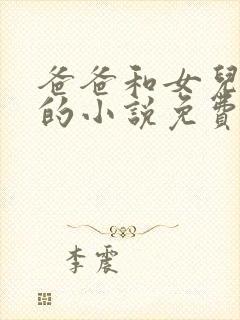 爸爸和女兒
的小說免費
李震